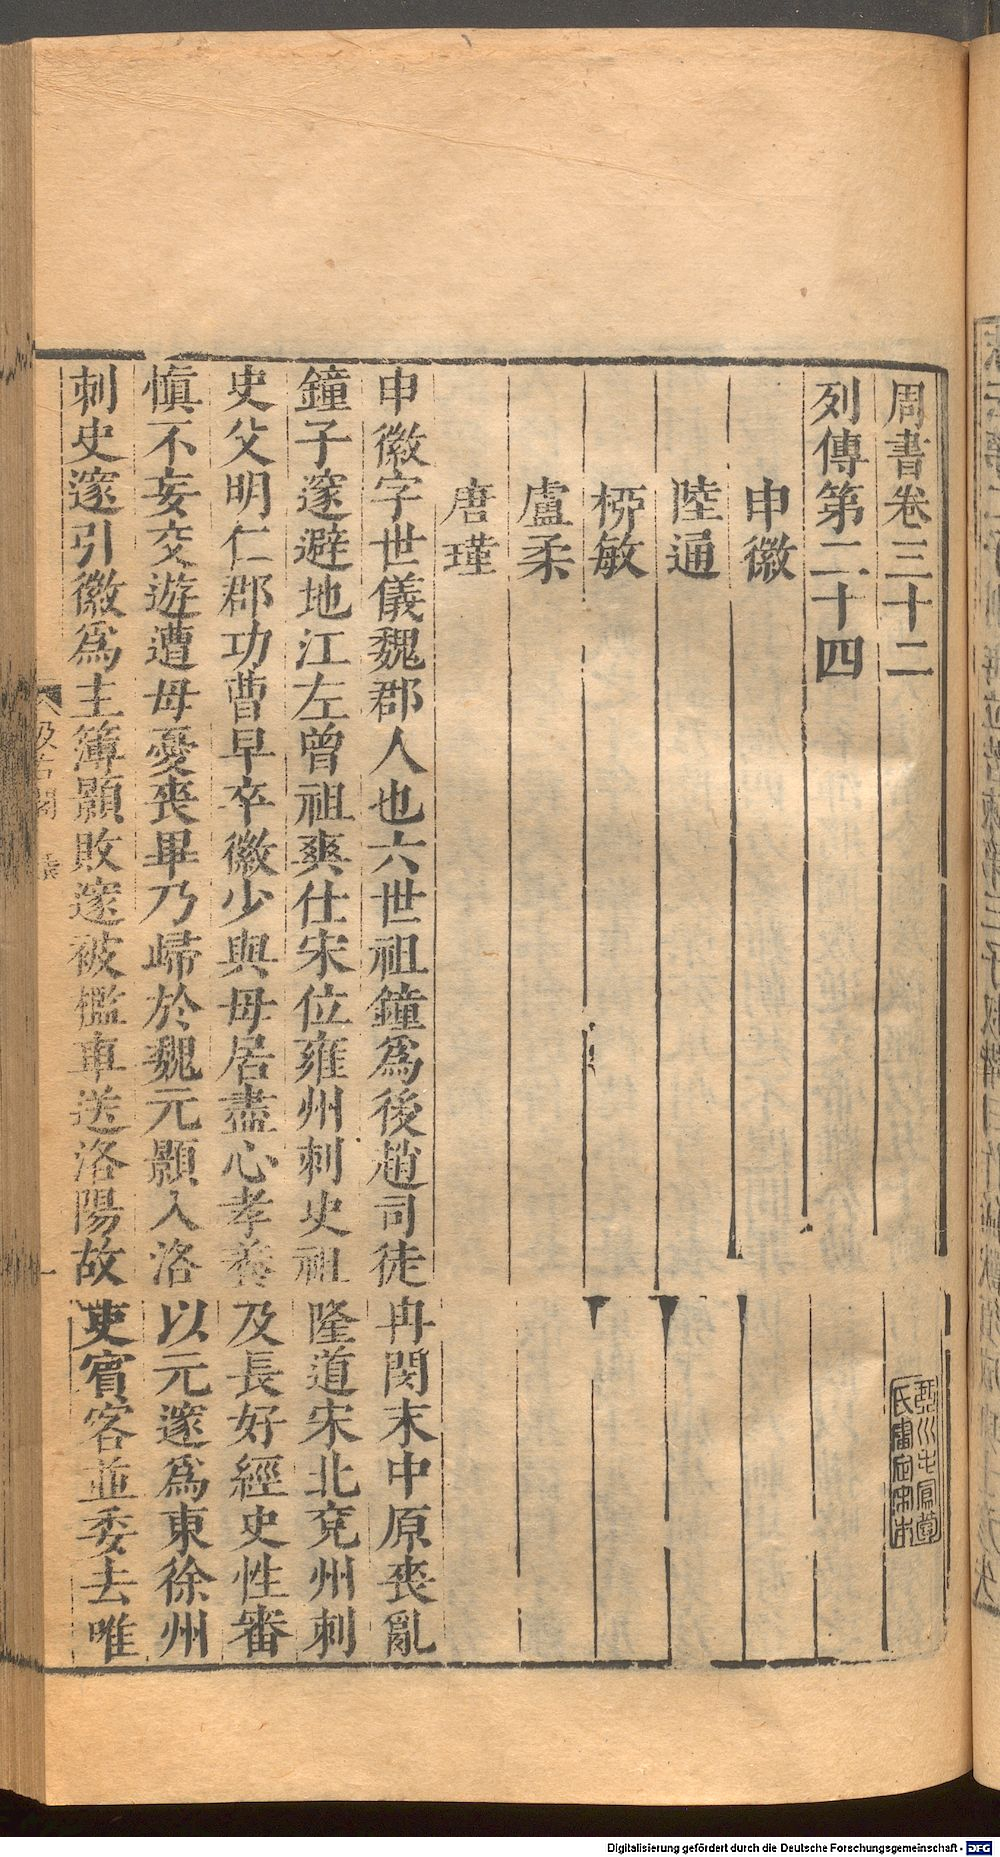 周書卷三十二
列傳第二十四
申徽
陸通
桺敏
盧柔
唐瑾
申徽字世儀魏郡人也六世祖鐘爲後趙司徒冉閔末中原喪亂
鐘子邃避地江左曾祖爽仕宋位雍州刺史祖隆道宋北兗州刺
史父明仁郡功曹早卒徽少與母居盡心孝養及長好經史性審
愼不妄交遊遭母憂喪畢乃歸於魏元顥入洛以元邃爲東徐州
刺史邃引徽爲主簿顥敗邃被檻車送洛陽故吏賓客並委去唯
汲古閣
一
Digitalisierung gefördert durch die Deutsche Forschungsgemeinschaft - DFG